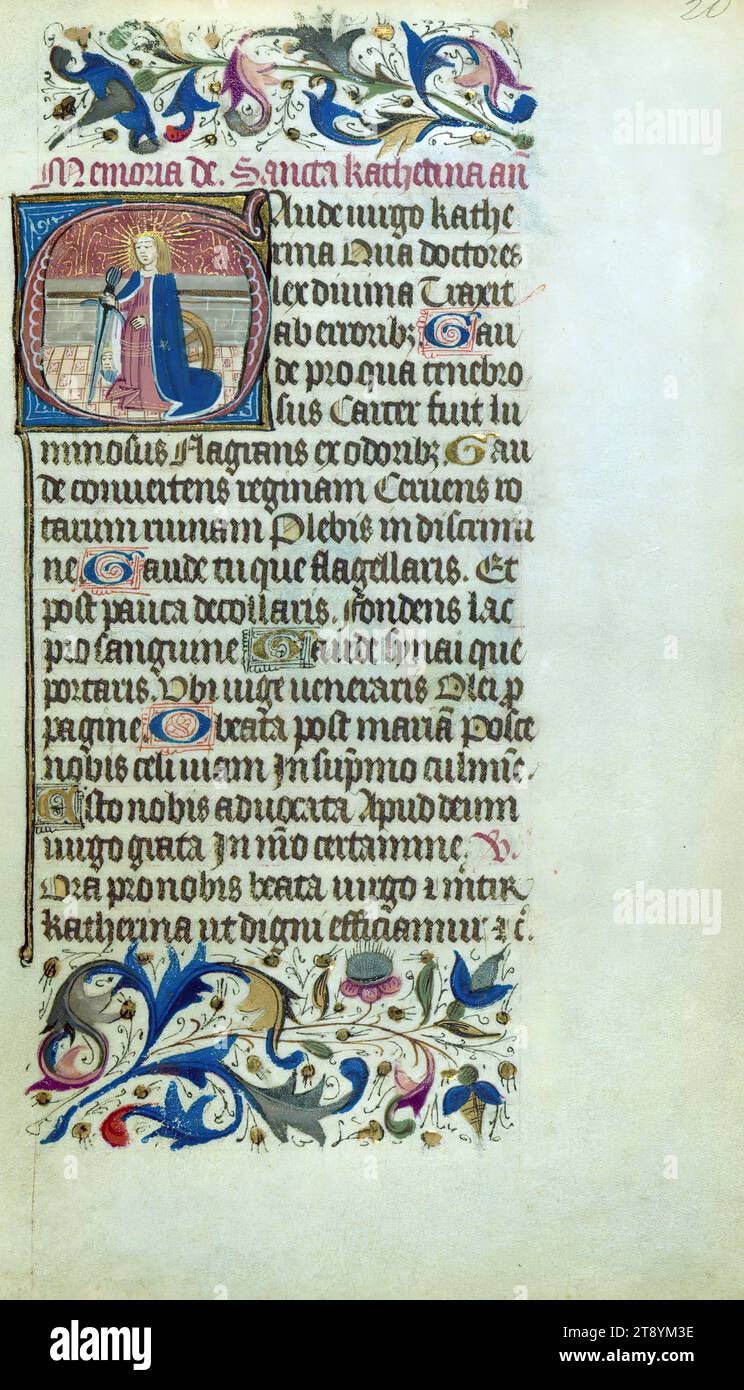 20
Memoria de. Sancta katherina añ
Gaude uirgo kathe
rina Qua doctores
lex diuina Traxit
ab erroribꝫ Gau
de pro qua tenebro
sus Carcer fuit lu
minosus Flagrans ex odoribꝫ Gau
de conuertens reginam Cernens ro
tarum ruinam Plebis in discrimi
ne Gaude tu que flagellaris. Et
post pauca decollaris. Fondens lac
pro sanguine Gaude synai que
portaris. Vbi uige ueneraris Olei ꝓ
pagine O beata post mariã Posce
nobis celi uiam In sup̃mo culmĩe.
Esto nobis aduocata Apud deum
uirgo grata In mõo certamine. V.
Ora pro nobis beata uirgo ⁊ m̃tir
katherina ut digni efficiamur ⁊ c̃.
alamy
alamy
alamy
alamy
Image ID: 2T8YM3E
www.alamy.com